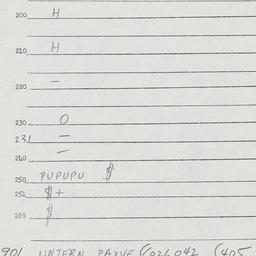 200 H
210 H
—
220
230 O
231 —
—
240
250 PUPUPU $
252 $ +
260 $
901 UNTERN PAXVE